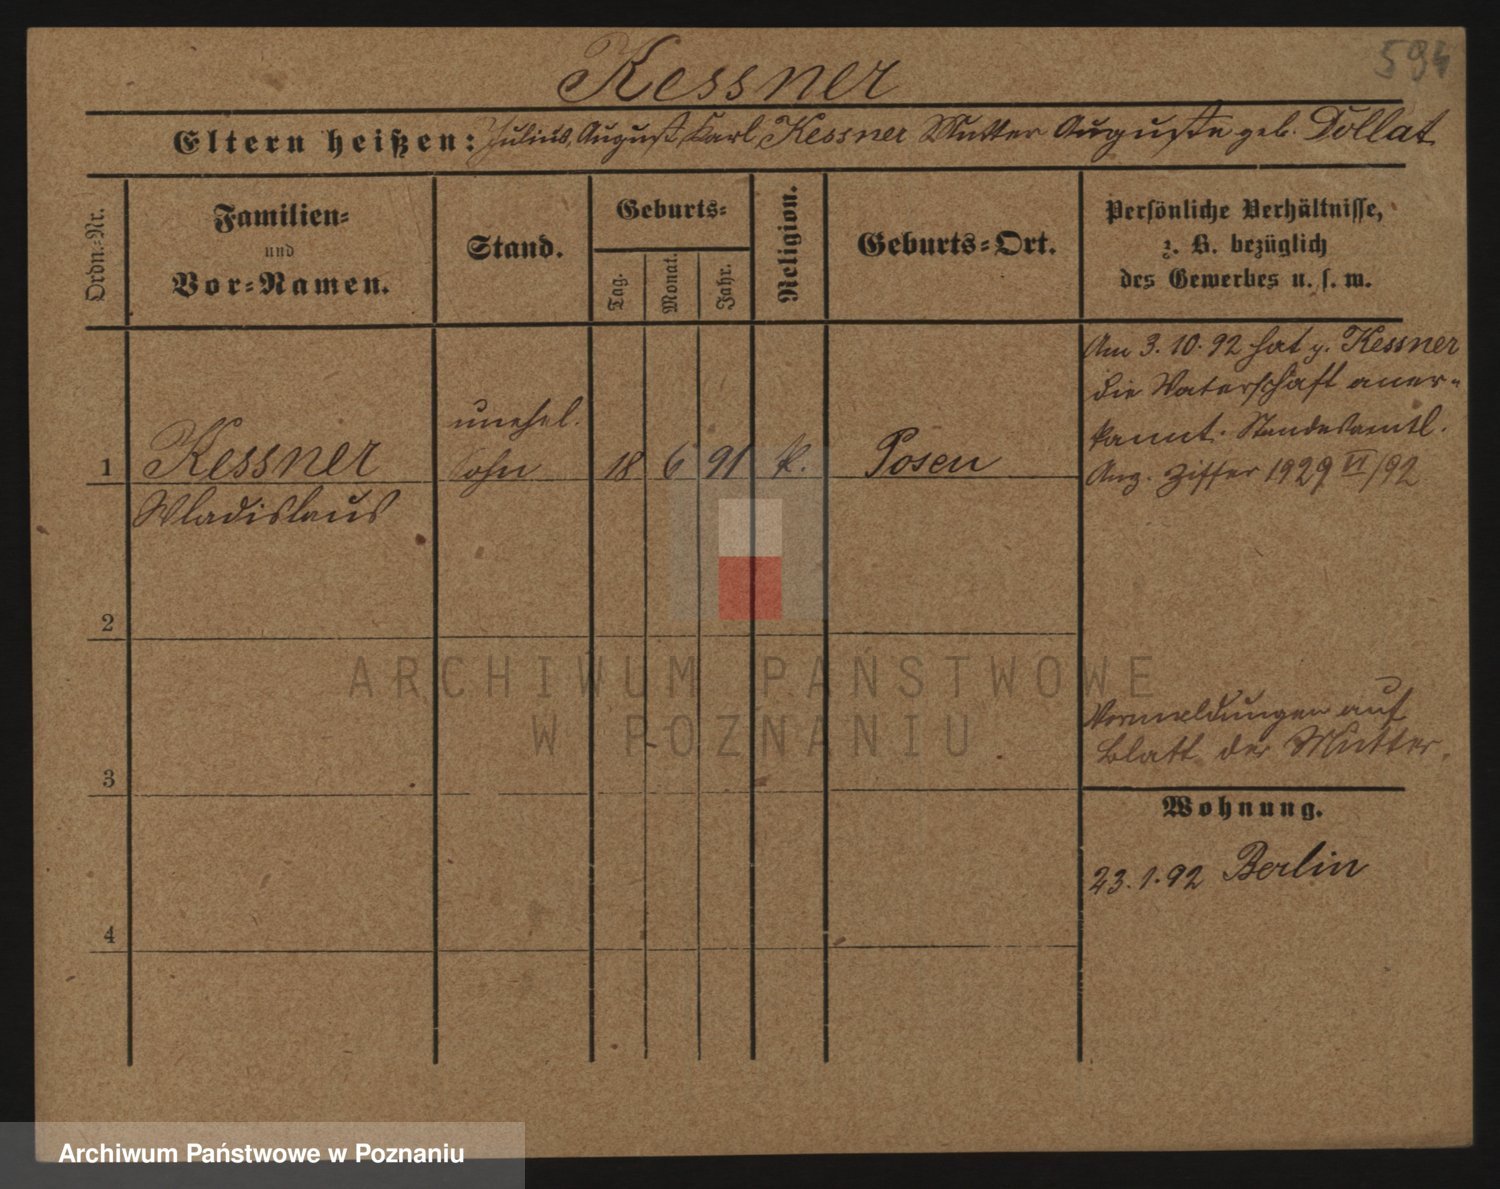 594
Kessner
Eltern heißen: Julius, August, Karl, Kessner Mutter Auguste geb. Dollat
Ordn.-Nr.
Familien-
und
Vor-Namen.
Stand.
Geburts-
Tag.
Monat.
Jahr.
Religion.
Geburts-Ort.
Persönliche Verhältnisse,
z. B. bezüglich
des Gewerbes u. s. w.
Am 3.10.92 hat p. Kessner
die Vaterschaft aner-
kannt. Standesamtl.
Anz. Ziffer 1929 VI/92
1 Kessner
Wladislaus
unehel.
Sohn
18 6 91 k. Posen
2
3
4
Vormeldungen auf
Blatt der Mutter.
Wohnung.
23.1.92 Berlin
ARCHIWUM PAŃSTWOWE
W POZNANIU
Archiwum Państwowe w Poznaniu